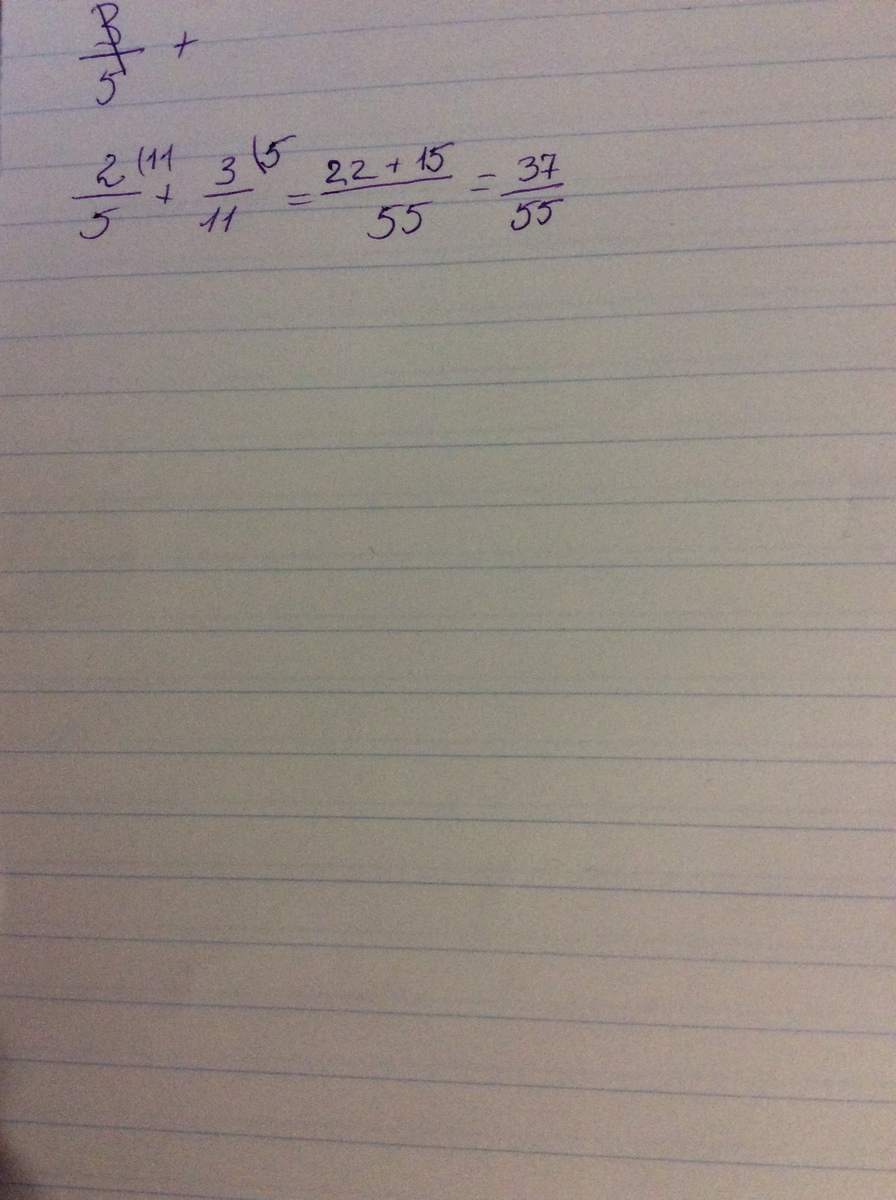 3/5 +
2/5 (11 + 3/11 (5 = 22 + 15/55 = 37/55